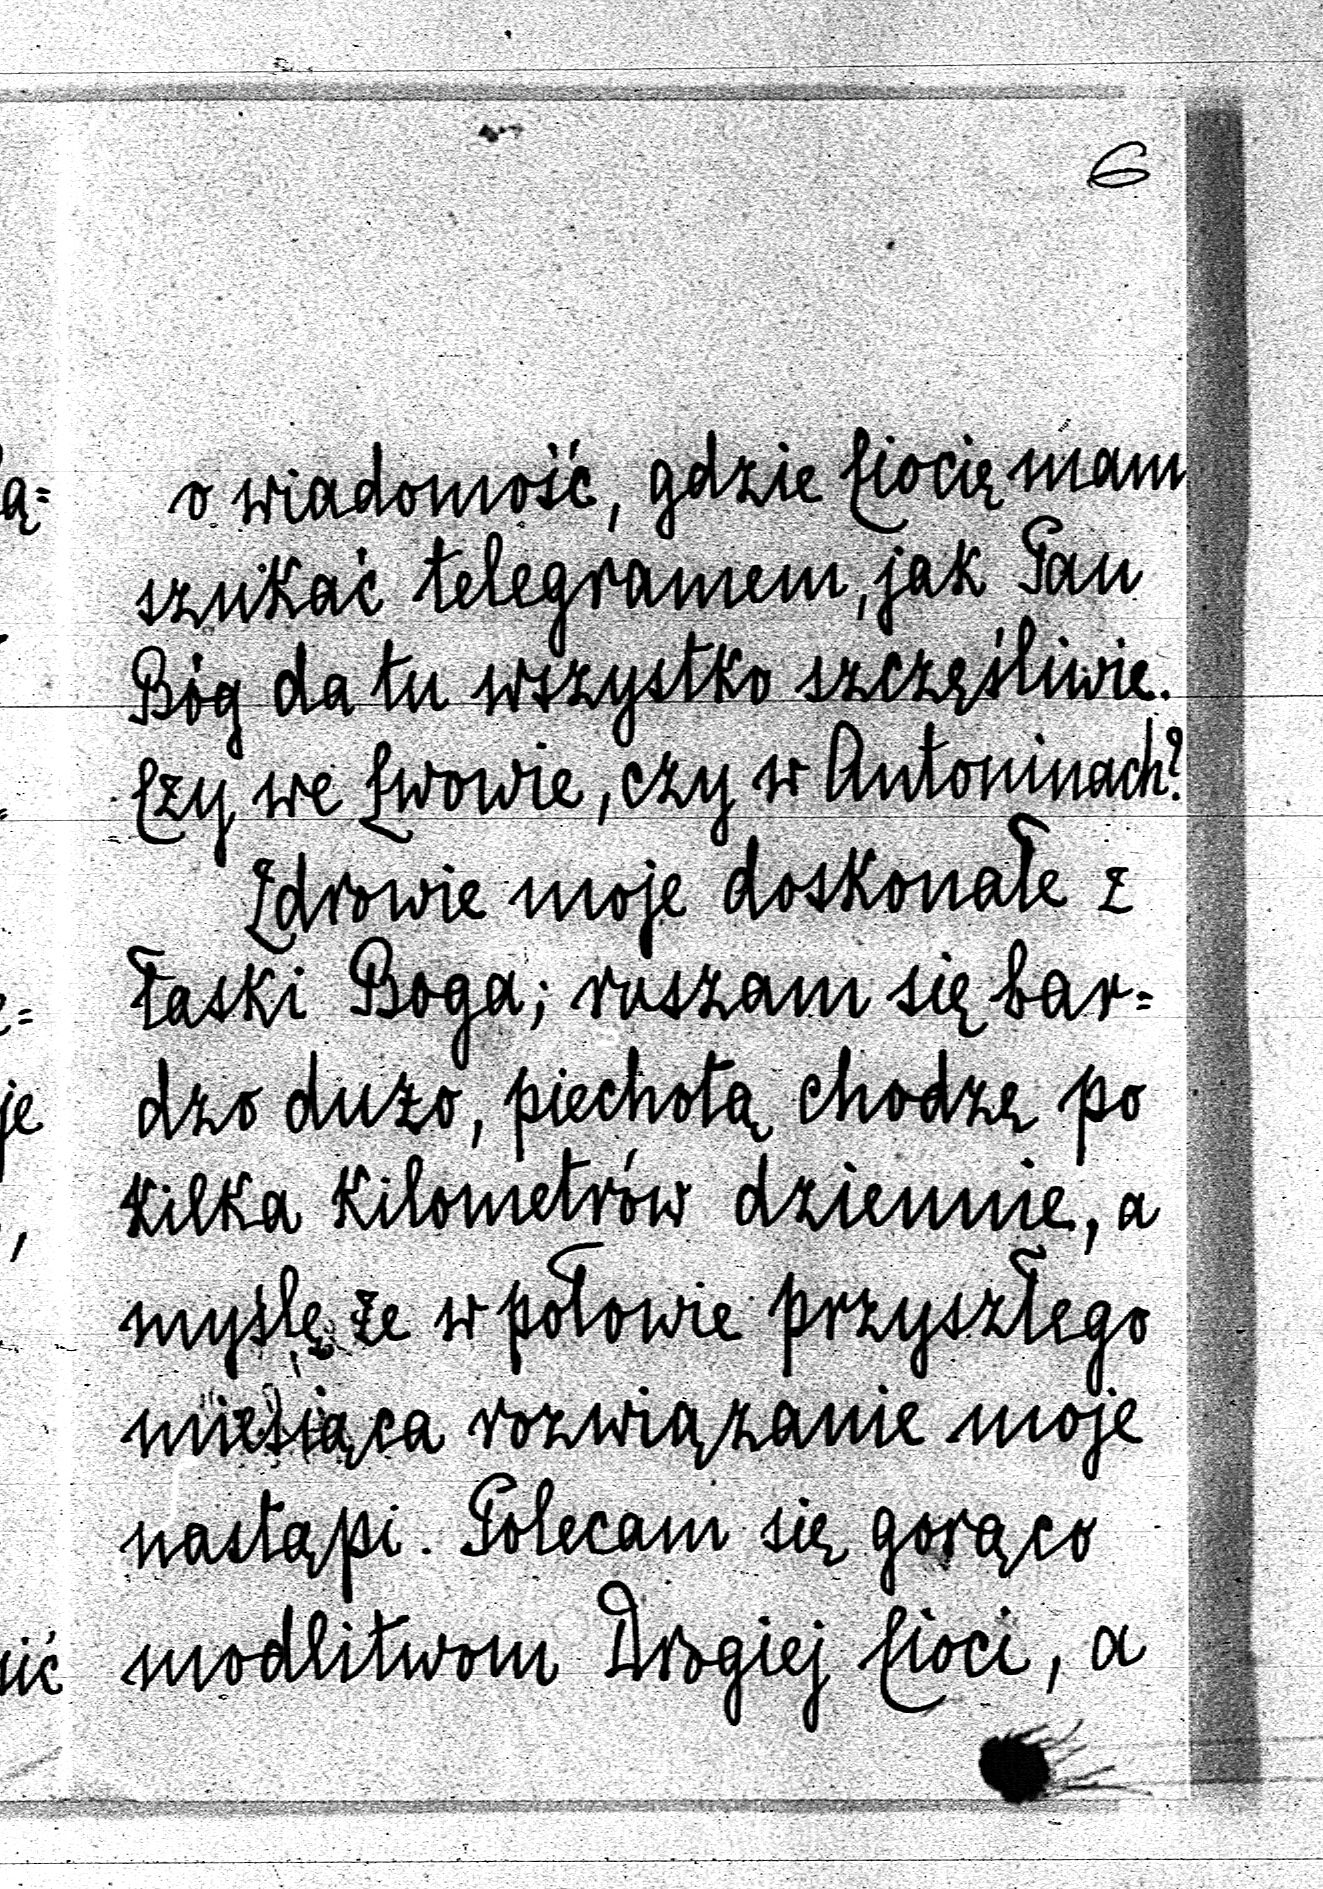 6
o wiadomość, gdzie Ciocię mam
szukać telegramem, jak Pan
Bóg da tu wszystko szczęśliwie.
Czy we Lwowie, czy w Antoninach?
Zdrowie moje doskonałe z
łaski Boga; ruszam się bar=
dzo dużo, piechotą chodzę po
kilka kilometrów dziennie, a
myślę, że w połowie przyszłego
miesiąca rozwiązanie moje
nastąpi. Polecam się gorąco
modlitwom Drogiej Cioci, a